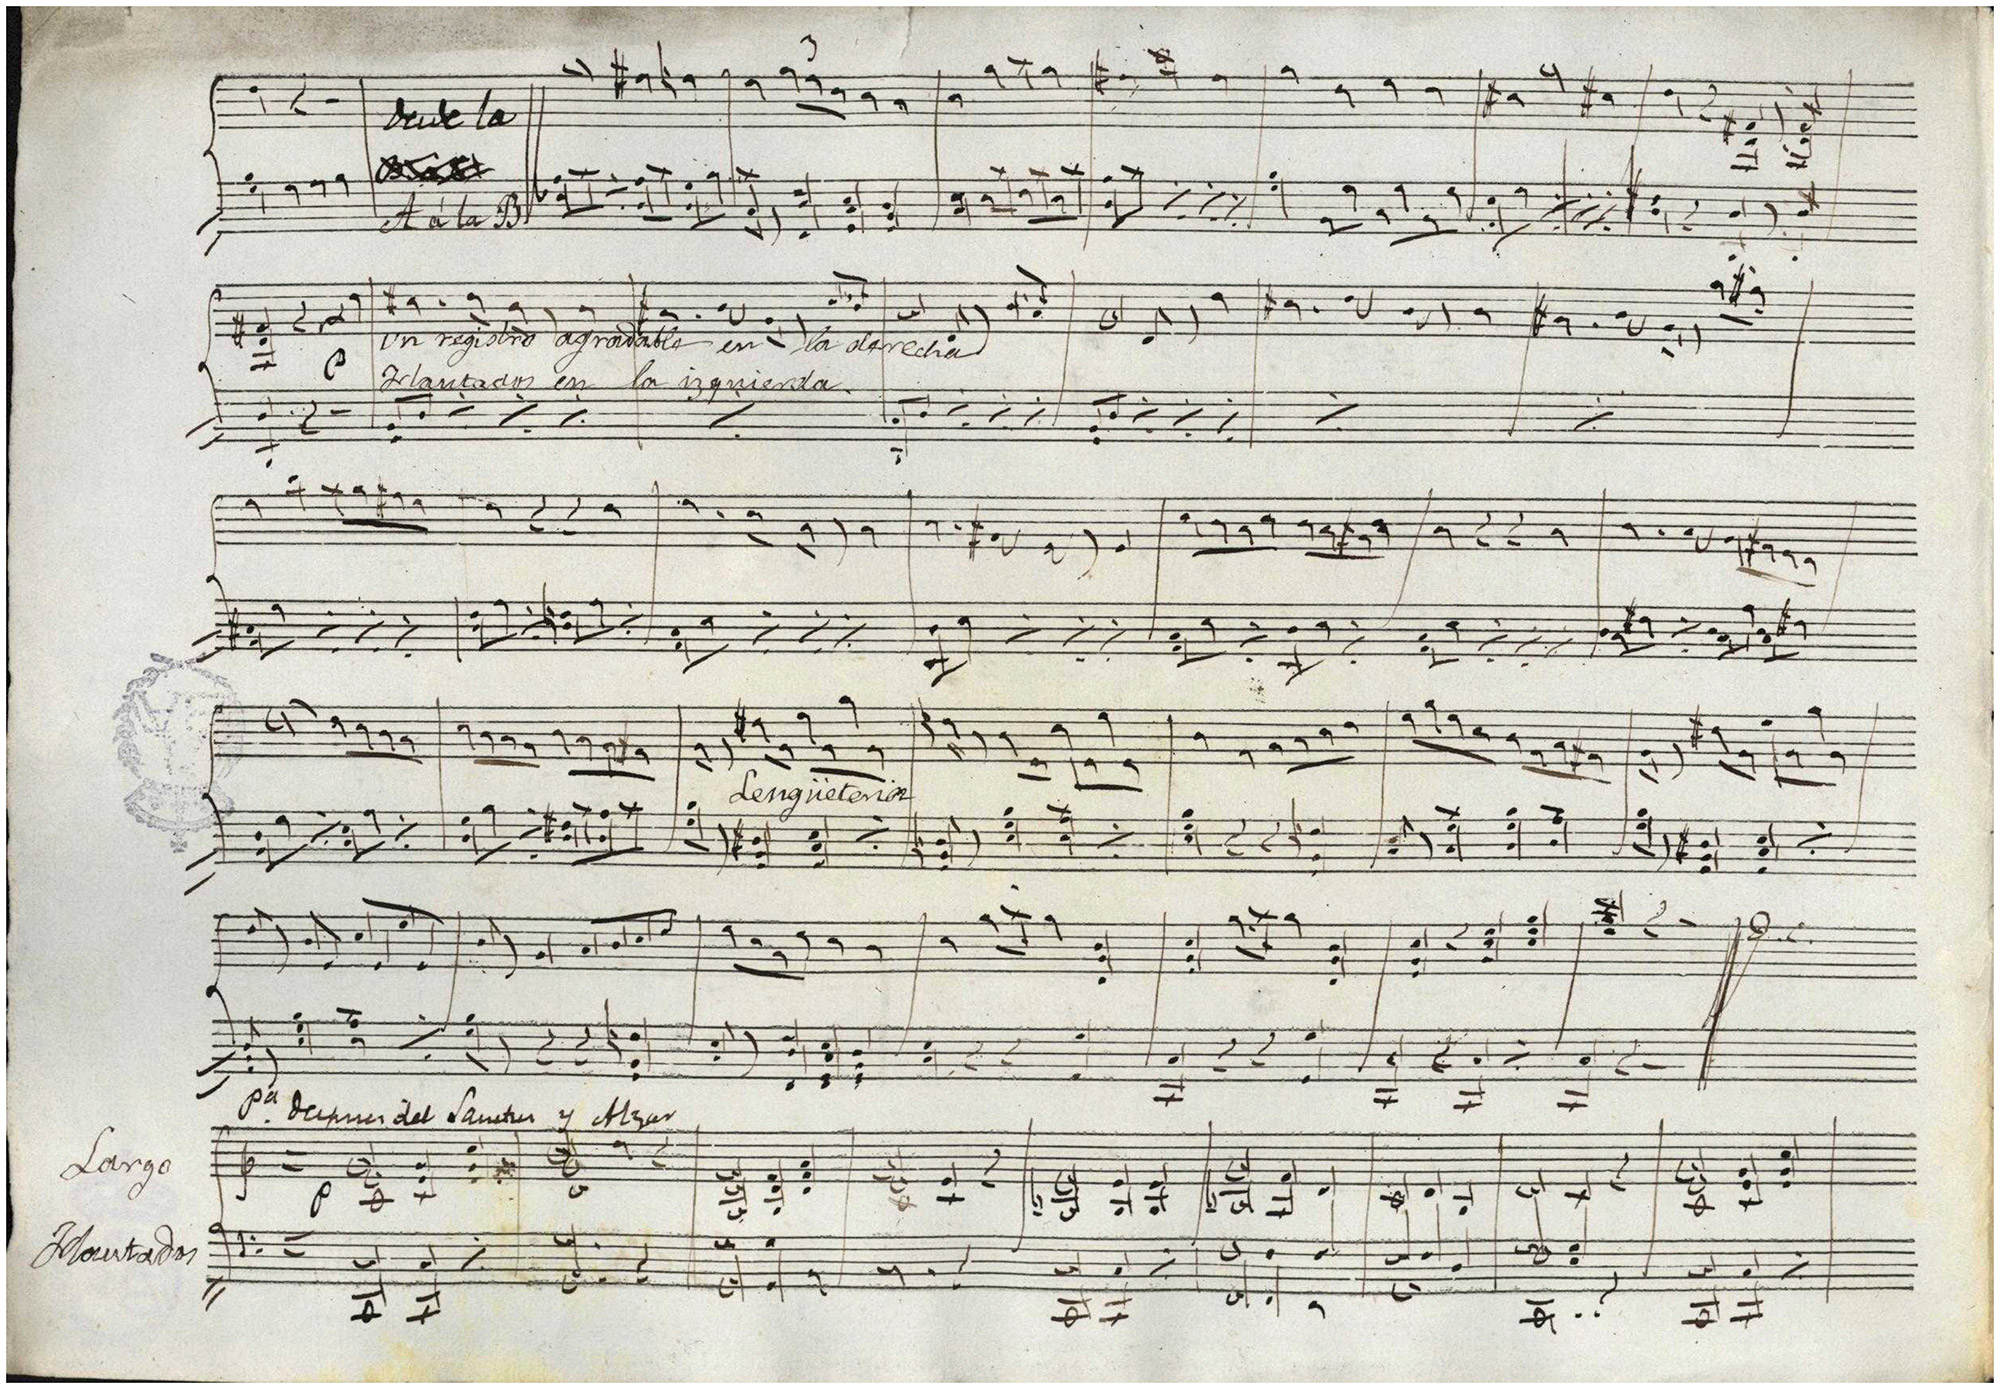 3
desde la
A á la B
un registro agradable en la derecha
p
Flautados en la izquierda.
Lengüeteria
D. C.
Pª. despues del Sanctus y Alzar
Largo
p
Flautados